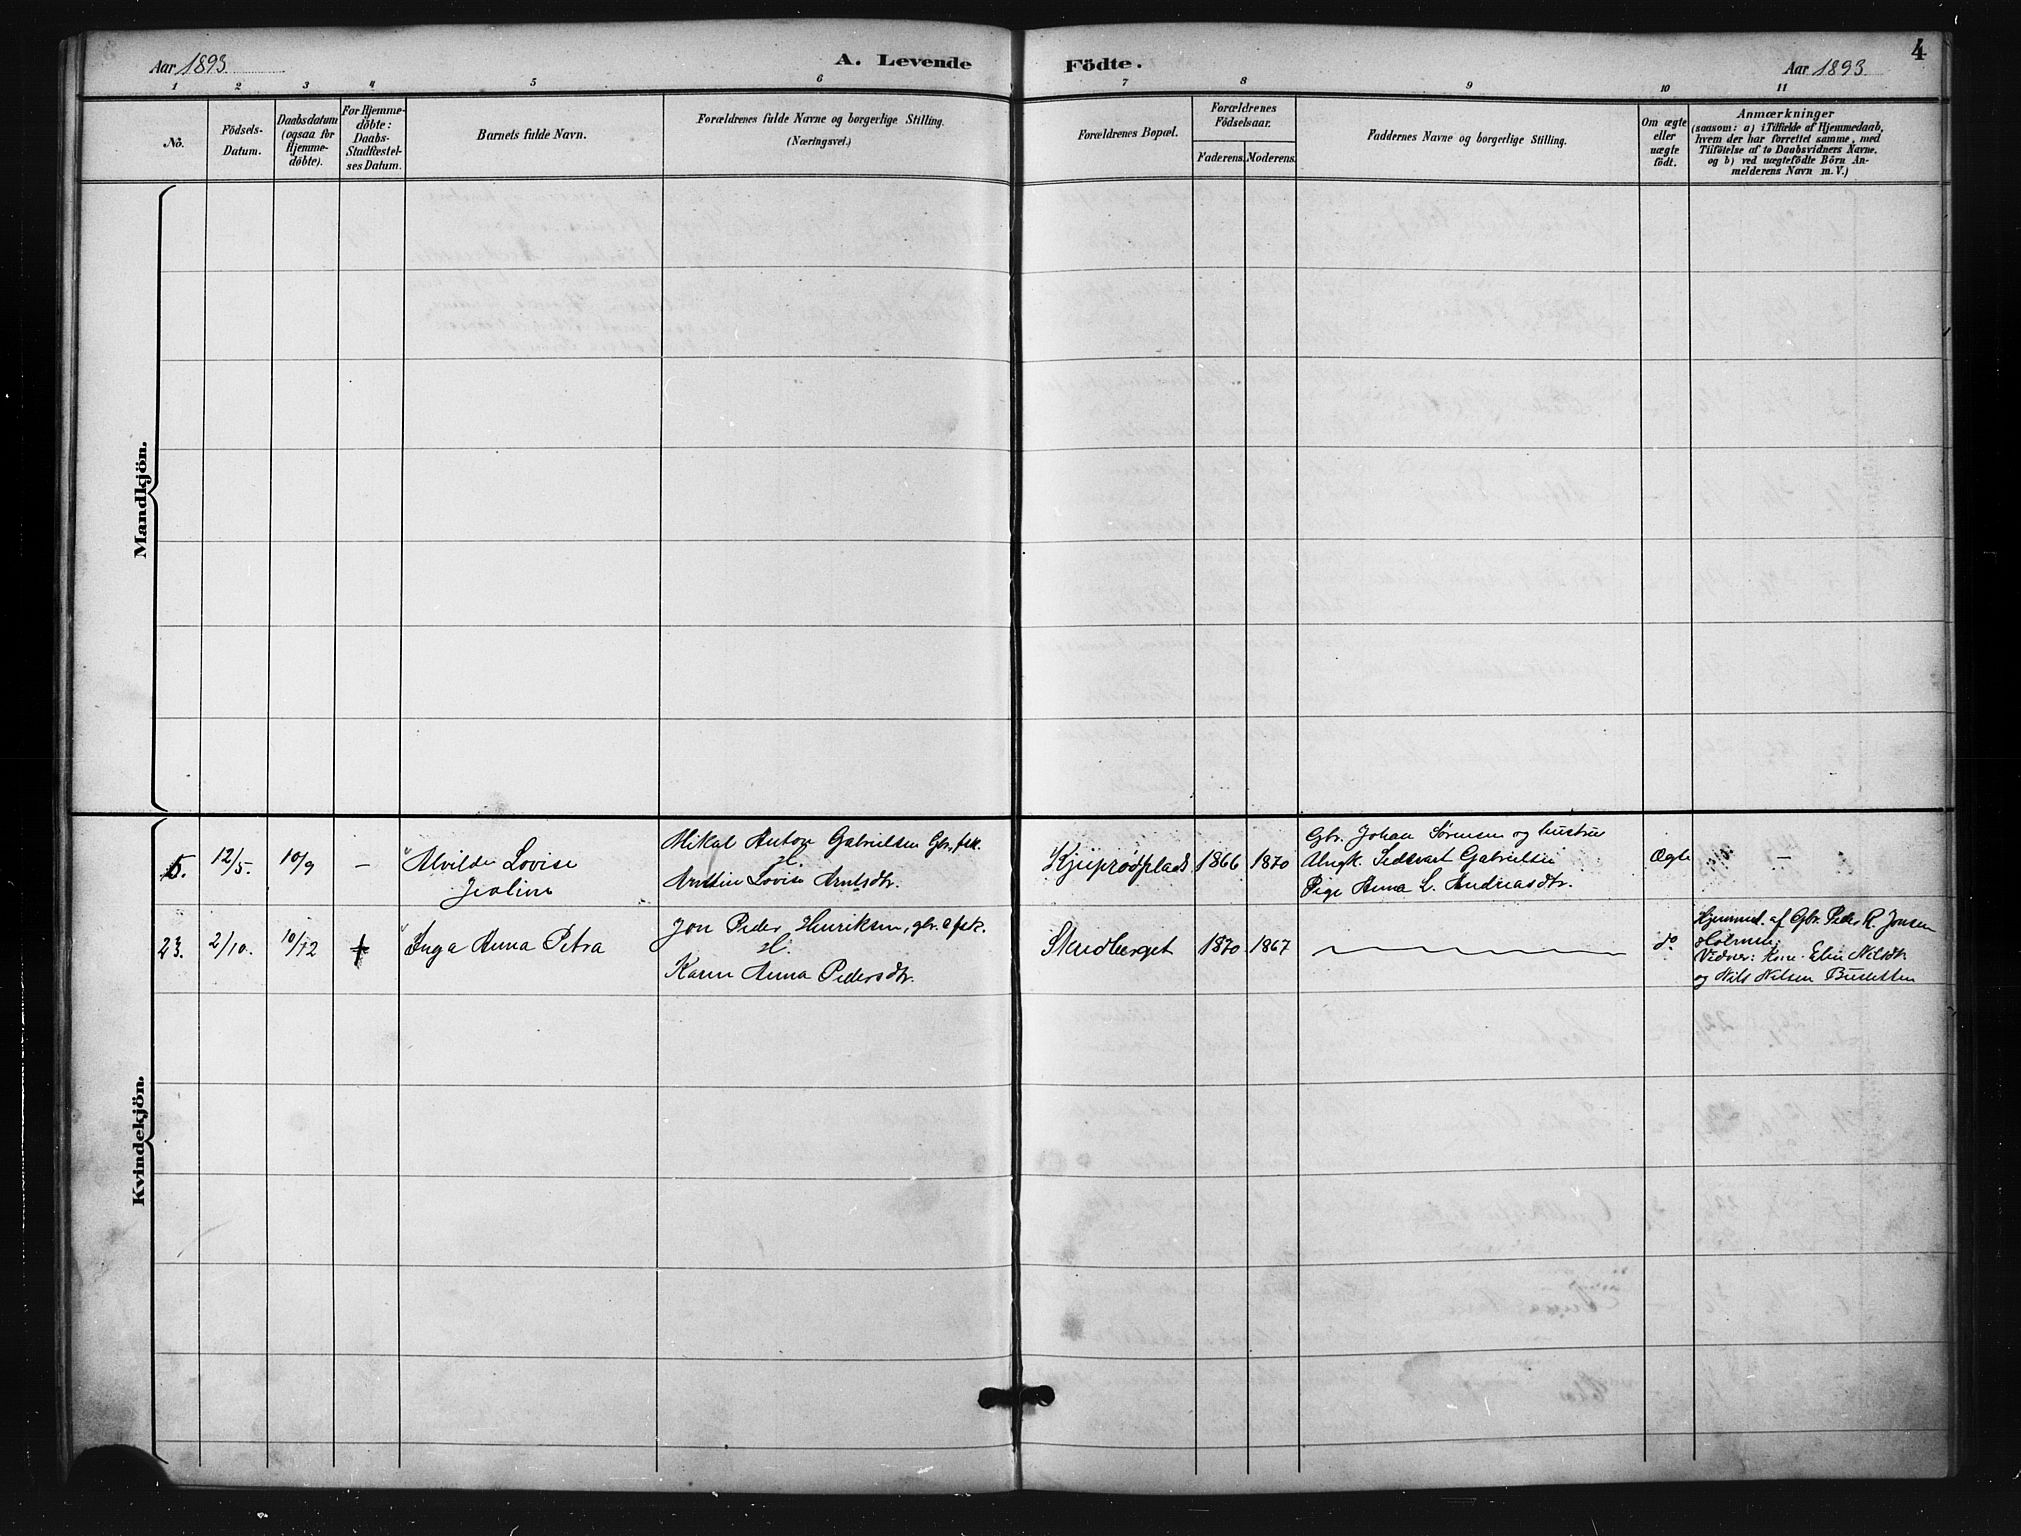 Aar 1893
A. Levende Födte.
Aar 1893
4
1 2 3 4 5 6 7 8 9 10 11
No.
Födsels-
Datum.
Daabsdatum
(ogsaa for
Hjemme-
døbte).
For Hjemme-
døbte:
Daabs-
Stadfæstel-
ses Datum.
Barnets fulde Navn.
Forældrenes fulde Navne og borgerlige Stilling.
(Næringsvei.)
Forældrenes Bopæl.
Forældrenes
Födselsaar.
Faderens. Moderens.
Faddernes Navne og borgerlige Stilling.
Om ægte
eller
uægte
født.
Anmærkninger
(saasom: a) i Tilfælde af Hjemmedaab,
hvem der har forrettet samme, med
Tilföielse af to Daabsvidners Navne,
og b) ved uægtefödte Börn An-
melderens Navn m. V.)
Mandkjön.
Kvindekjön.
5. 12/5. 10/9 –
Alvilde Lovise
Mikal Anton Gabrielsen Gbr.
H.
Lovise Arntsdtr.
1866 1870
Gbr. Johan Sørensen og hustru
Ungk. Gabrielsen
Pige Anna L. Andreasdtr.
Ægte –
23. 2/10. 10/12 +
Inga Anna Petra
Jon Peder Henriksen, gbr.
H.
Karen Anna Pedersdtr.
Skudberget 1870 1867
do
Hjemmed. af Gbr. Peder R. Jonsen
Holmen.
Vidner: Kone Elen Nilsdtr
og Nils Nilsen